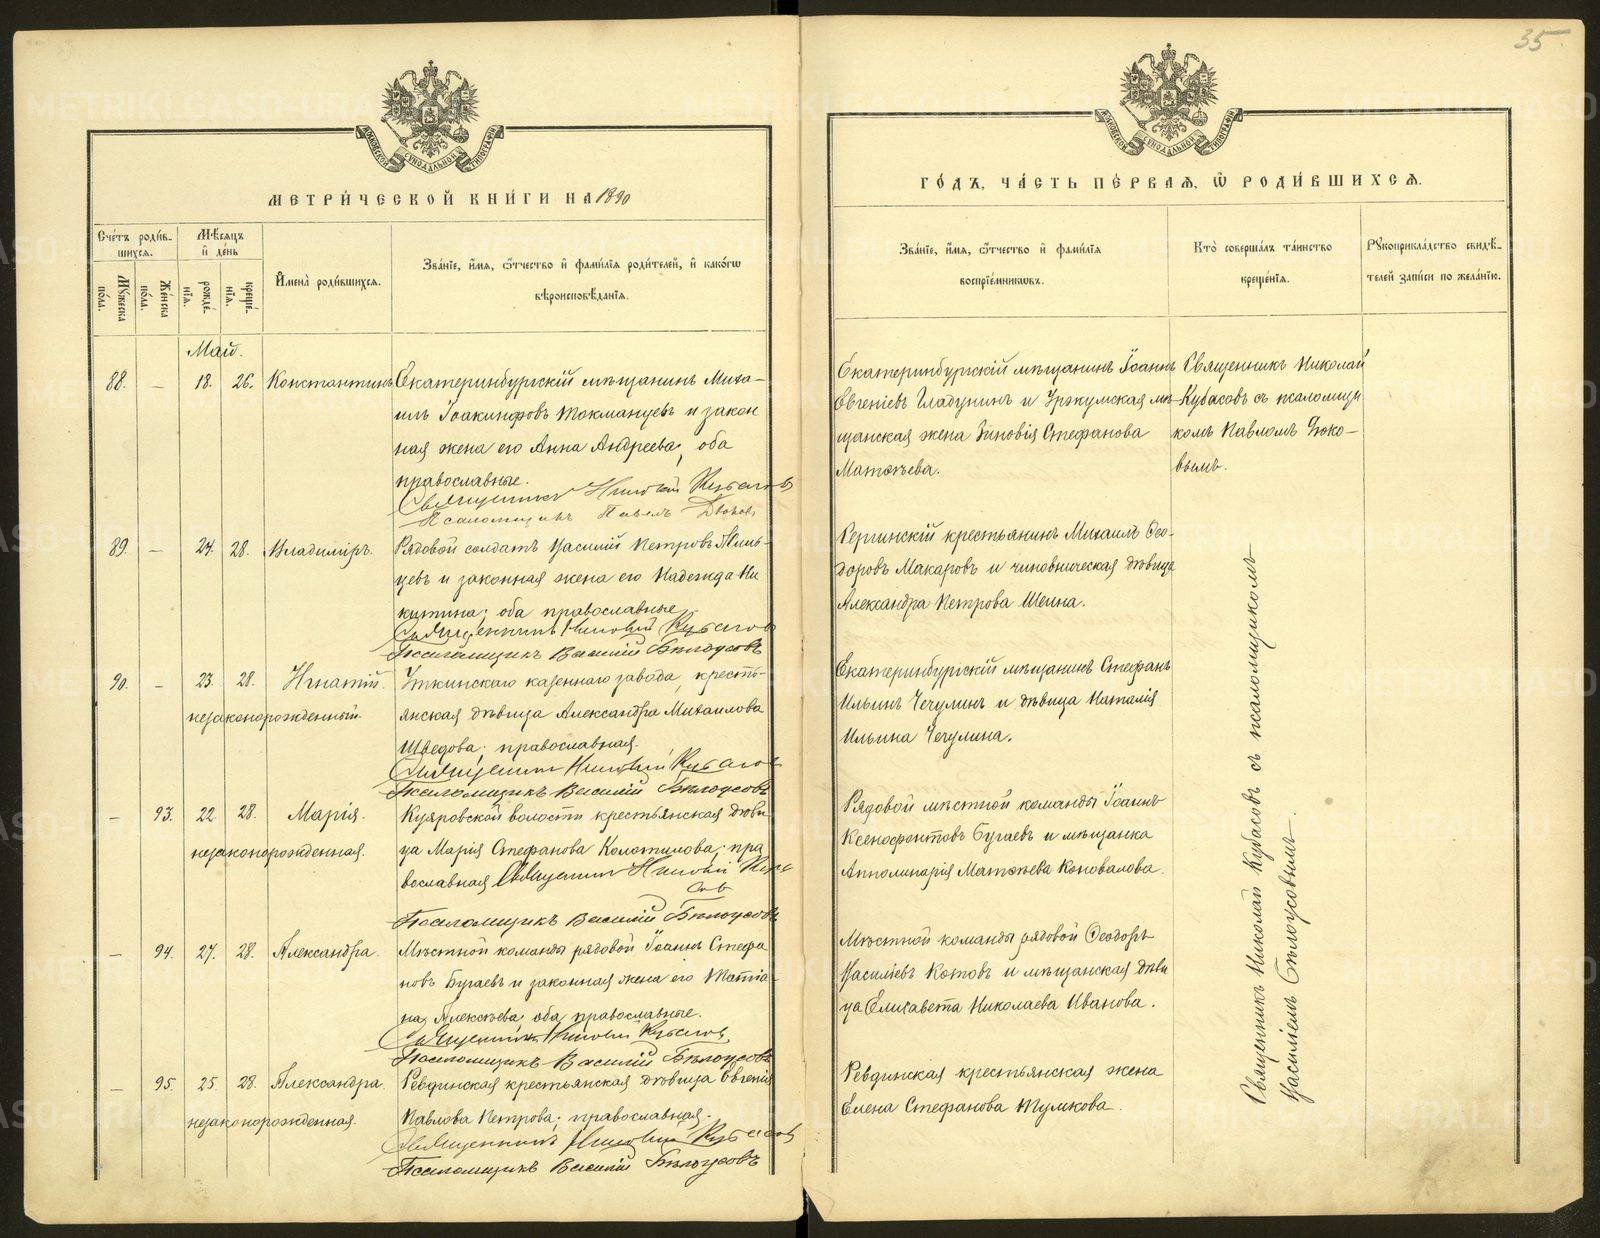 35
МОСКОВСКОЙ СѴНОДАЛЬНОЙ ТИПОГРАФІИ
МОСКОВСКОЙ СѴНОДАЛЬНОЙ ТИПОГРАФІИ
МЕТРИ́ЧЕСКОЙ КНИ́ГИ НА 1890
ГО́ДЪ, ЧА́СТЬ ПЕ́РВАѦ, Ѡ҆ РОДИ́ВШИХСѦ.
Сче́тъ роди́в-
шихсѧ.
Му́жеска по́ла.
Же́нска по́ла.
Мѣ́сѧцъ
и҆ де́нь
рожде́-
нїѧ.
креще́-
нїѧ.
И҆мена̀ роди́вшихсѧ.
Зва́нїе, и҆́мѧ, ѻ҆́тчество и҆ фами́лїѧ роди́телей, и҆ како́гѡ
вѣроисповѣ́данїѧ.
Зва́нїе, и҆́мѧ, ѻ҆́тчество и҆ фами́лїѧ
воспрїе́мникѡвъ.
Кто̀ соверша́лъ та́инство
креще́нїѧ.
Рꙋкоприкла́дство свидѣ́-
телей за́писи по жела́нїю.
Май.
88. — 18. 26. Константинъ
Екатеринбургскій мѣщанинъ Миха-
илъ Іоакинфовъ Токманцевъ и закон
ная жена его Анна Андреева, оба
православные.
Священникъ Николай Кубасовъ
Псаломщикъ Павелъ
Екатеринбургскій мѣщанинъ Іоаннъ
Евгеніевъ Гладунинъ и Уржумская мѣ-
щанская жена Зиновія Стефанова
Матѳѣева.
Священникъ Николай
Кубасовъ съ псаломщи
комъ Павломъ
вымъ.
89. — 24. 28. Владиміръ.
Рядовой солдатъ Василій Петровъ
цевъ и законная жена его Надежда Ни
китина; оба православные.
Священникъ Николай Кубасовъ
Псаломщикъ Василій Бѣлоусовъ
крестьянинъ Михаилъ Ѳео-
доровъ Макаровъ и чиновническая дѣвица
Александра Петрова Шеина.
90. — 23. 28. Игнатій.
незаконорожденный.
Уткинскаго казеннаго завода, кресть-
янская дѣвица Александра Михаилова
Шведова; православная.
Священникъ Николай Кубасовъ
Псаломщикъ Василій Бѣлоусовъ
Екатеринбургскій мѣщанинъ Стефанъ
Ильинъ Чечулинъ и дѣвица Наталія
Ильина Чечулина.
— 93. 22. 28. Марія.
незаконорожденная.
Куяровской волости крестьянская дѣви
ца Марія Стефанова Колотилова; пра
вославная Священникъ Николай Куба
совъ
Псаломщикъ Василій Бѣлоусовъ
Рядовой мѣстной команды Іоаннъ
Ксенофонтовъ Бугаевъ и мѣщанка
Апполинарія Матѳѣева Коновалова.
— 94. 27. 28. Александра.
Мѣстной команды рядовой Іоаннъ Стефа
новъ Бугаевъ и законная жена его Татіа-
на Алексѣева, оба православные.
Священникъ Николай Кубасовъ
Псаломщикъ Василій Бѣлоусовъ
Мѣстной команды рядовой Ѳеодоръ
Василіевъ Котовъ и мѣщанская дѣви
ца Елисавета Николаева Иванова.
— 95. 25. 28. Александра.
незаконорожденная.
Ревдинская крестьянская дѣвица Евгенія
Павлова Петрова; православная.
Священникъ Николай Кубасовъ
Псаломщикъ Василій Бѣлоусовъ
Ревдинская крестьянская жена
Елена Стефанова Тумкова.
Священникъ Николай Кубасовъ съ псаломщикомъ
Василіемъ Бѣлоусовымъ.